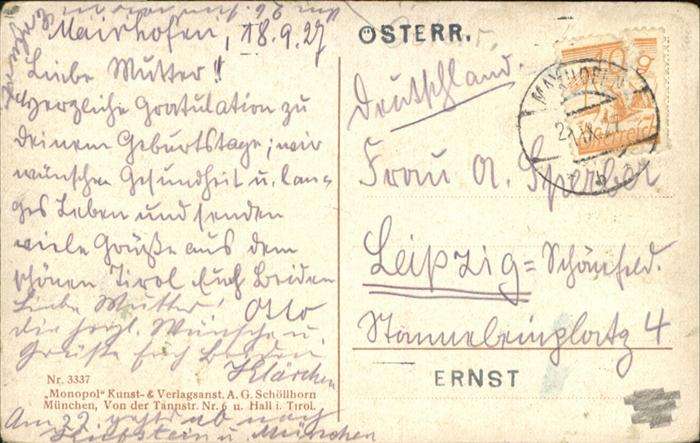 Mairhofen, 18.9.27
Liebe Mutter!
Herzliche Gratulation zu
deinem Geburtstage; wir
wünschen Gesundheit u. lan-
ges Leben und senden
viele Grüße aus dem
schönen Tirol Euch beiden
Otto
Liebe Mutter!
die herzl. Wünsche u.
Grüße Euch beiden
Klärchen
Am 22. geht's ab nach
u. München
Nr. 3337
„Monopol" Kunst- & Verlagsanst. A. G. Schöllhorn
München, Von der Tannstr. Nr. 6 u. Hall i. Tirol.
ÖSTERR.
Deutschland.
Frau A. Sperber
Leipzig = Schönefeld.
4
ERNST